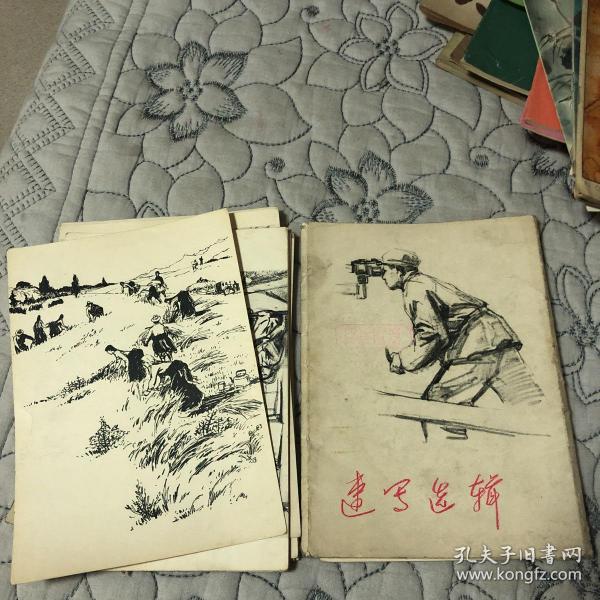 速写选辑
孔夫子旧书网
www.kongfz.com